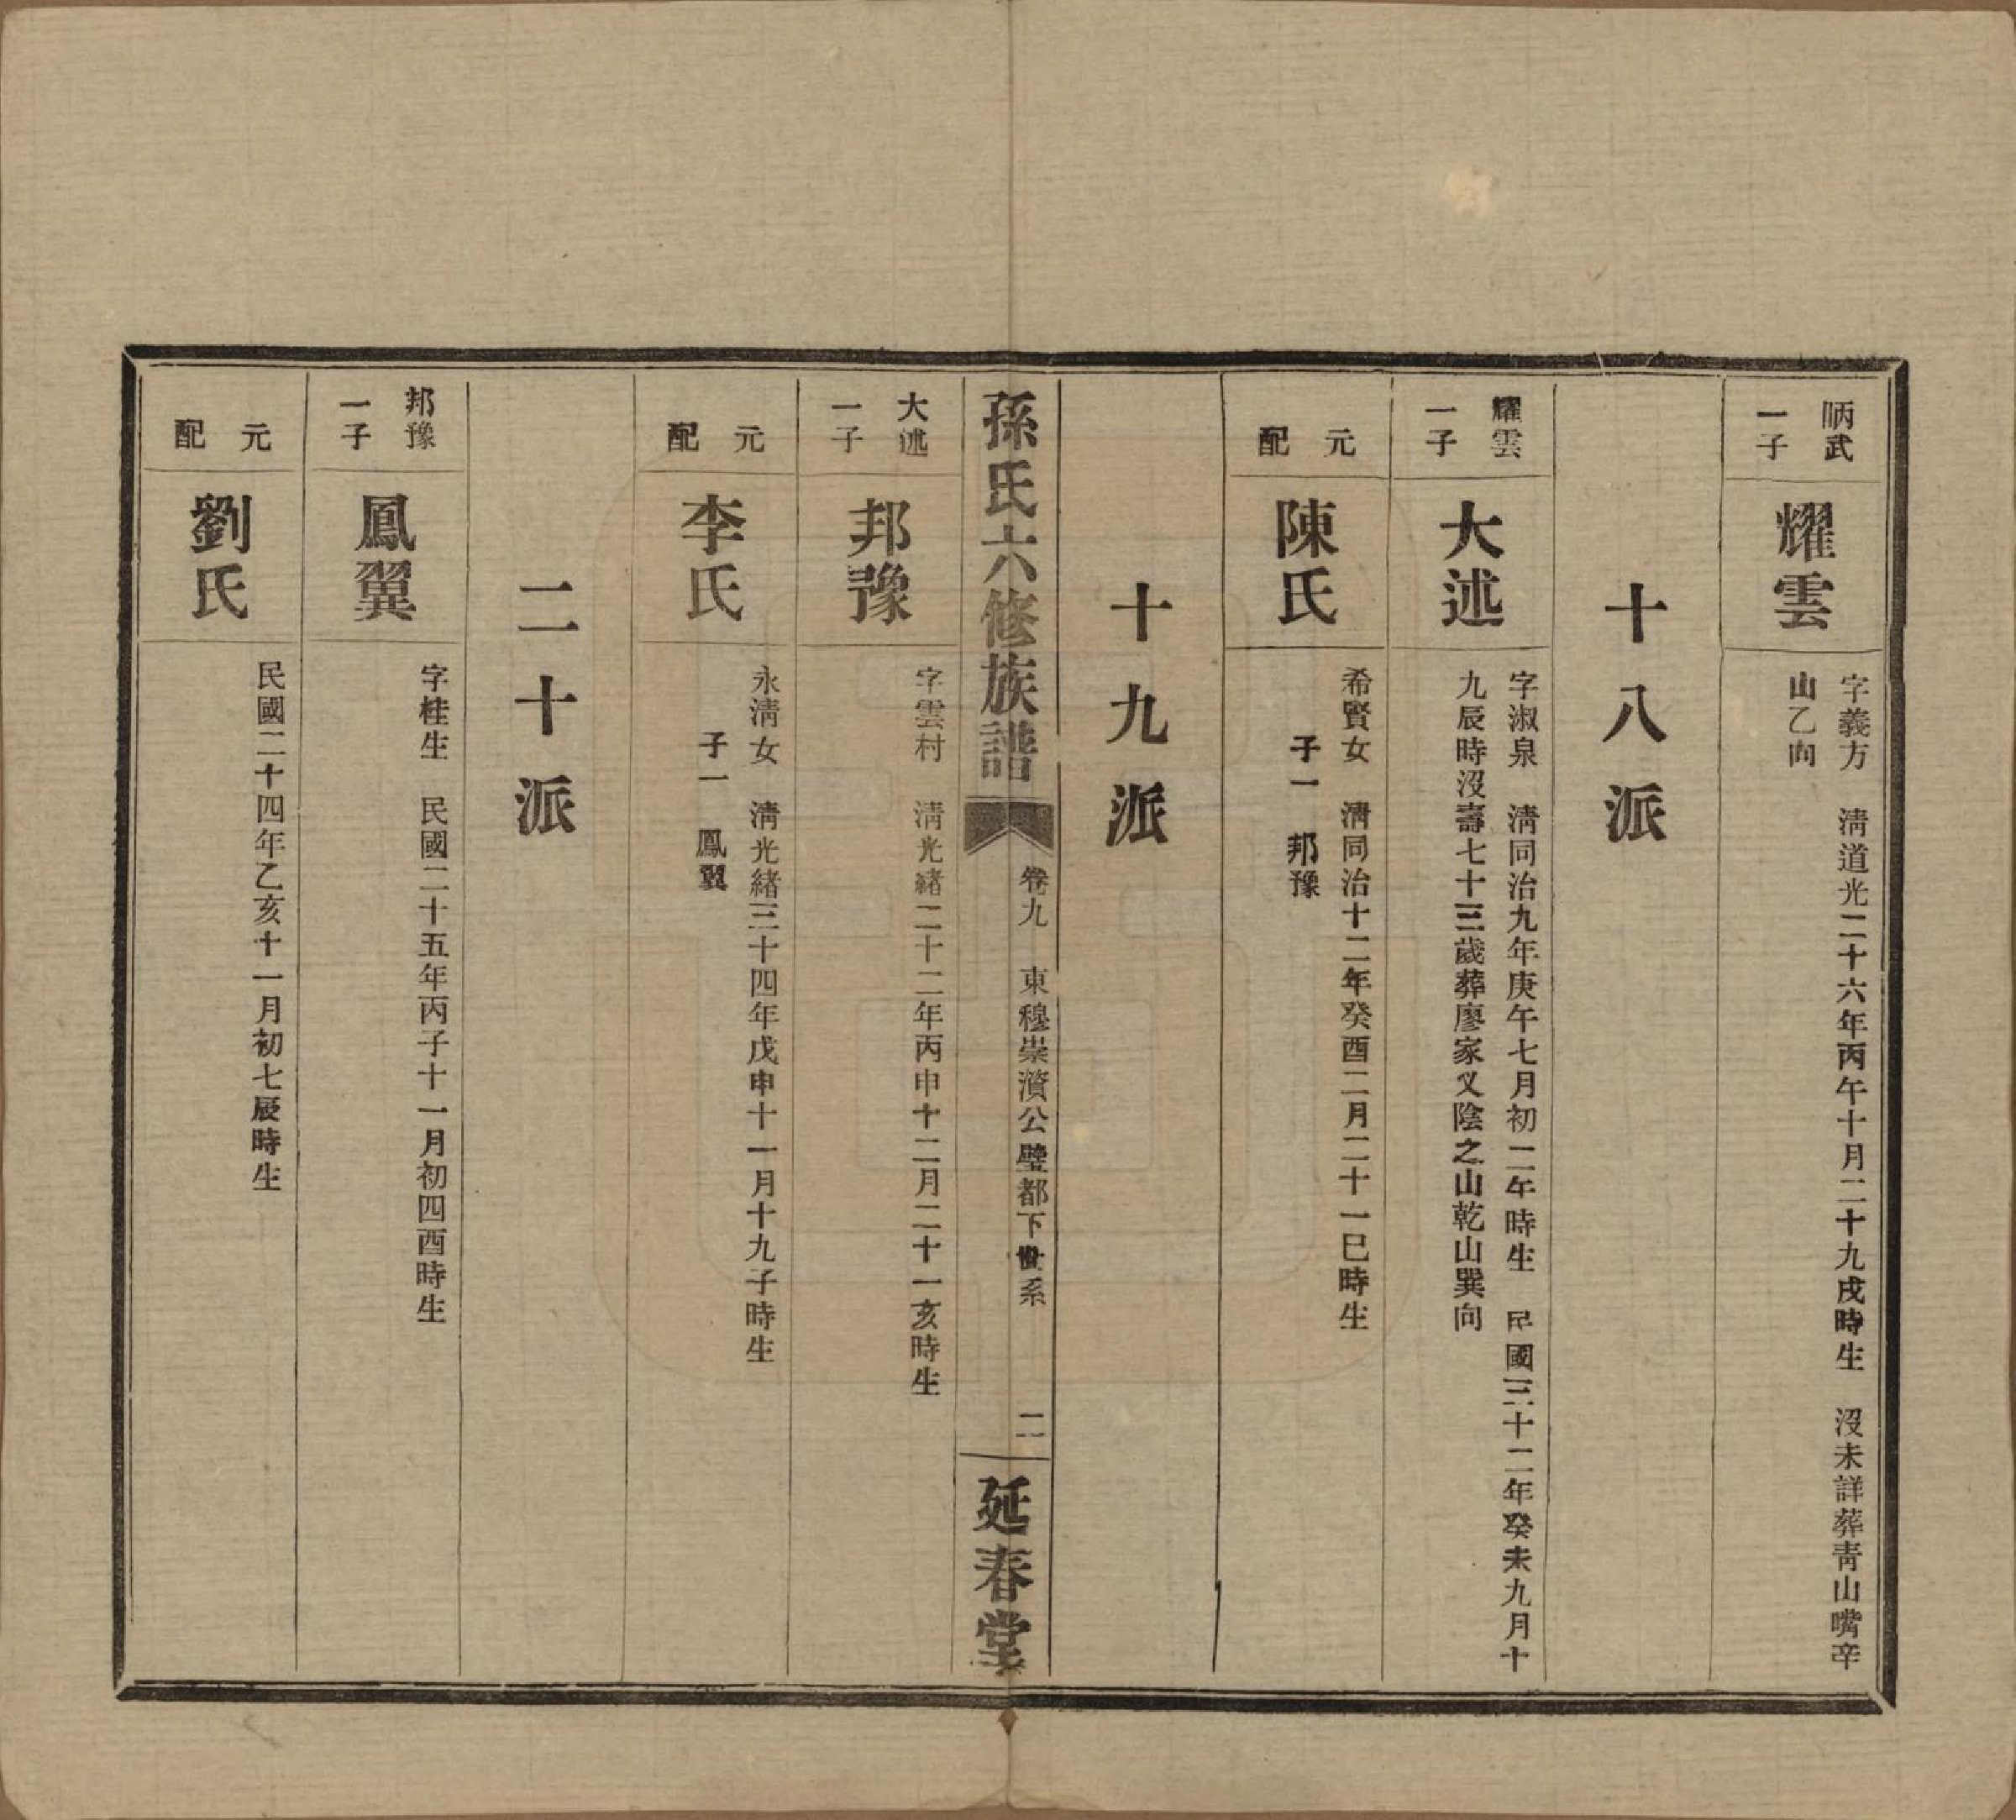 昞武
一子
耀雲
字義方　淸道光二十六年丙午十月二十九戌時生　沒未詳葬靑山嘴辛
山乙向
十八派
耀雲
一子
大述
字淑泉　淸同治九年庚午七月初二午時生　民國三十二年癸未九月十
九辰時沒壽七十三歲葬廖家义陰之山乾山巽向
元配
陳氏
希賢女　淸同治十二年癸酉二月二十一巳時生
子一　邦豫
十九派
孫氏六修族譜
卷九　東穆崇濱公璧都下世系
二
延春堂
大述
一子
邦豫
字雲村　淸光緒二十二年丙申十二月二十一亥時生
元配
李氏
永淸女　淸光緒三十四年戊申十一月十九子時生
子一　鳳翼
二十派
邦豫
一子
鳳翼
字桂生　民國二十五年丙子十一月初四酉時生
元配
劉氏
民國二十四年乙亥十一月初七辰時生